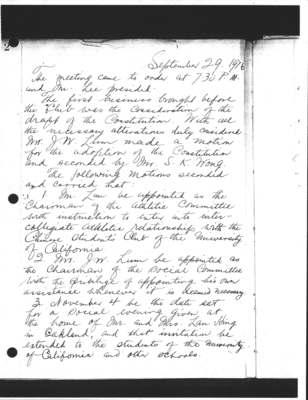 September 29, 1916
The meeting came to order at 7:30 P.M.
and Mr. Lee presided.
The first business brought before
the Club was the consideration of the
draft of the Constitution. With all
the necessary alterations duly considered
Mr. J W Lum made a motion
for the adoption of the Constitution
and seconded by Mrs S. K. Wong.
The following motions seconded
and carried that:
1 Mr Lim be appointed as the
Chairman of the Athletic Committee
with instruction to enter into inter-
collegiate athletic relationship with the
Chinese Students Club of the University
of California
2 Mr. J W Lum be appointed as
the Chairman of the Social Committee
with the privilege of appointing his own
assistance whenever it is deemed necessary
3 November 4 be the date set
for a social evening given at
the home of Mr and Mrs. Lau Hing
in Oakland, and that invitation be
extended to the students of the University
of California and other schools.